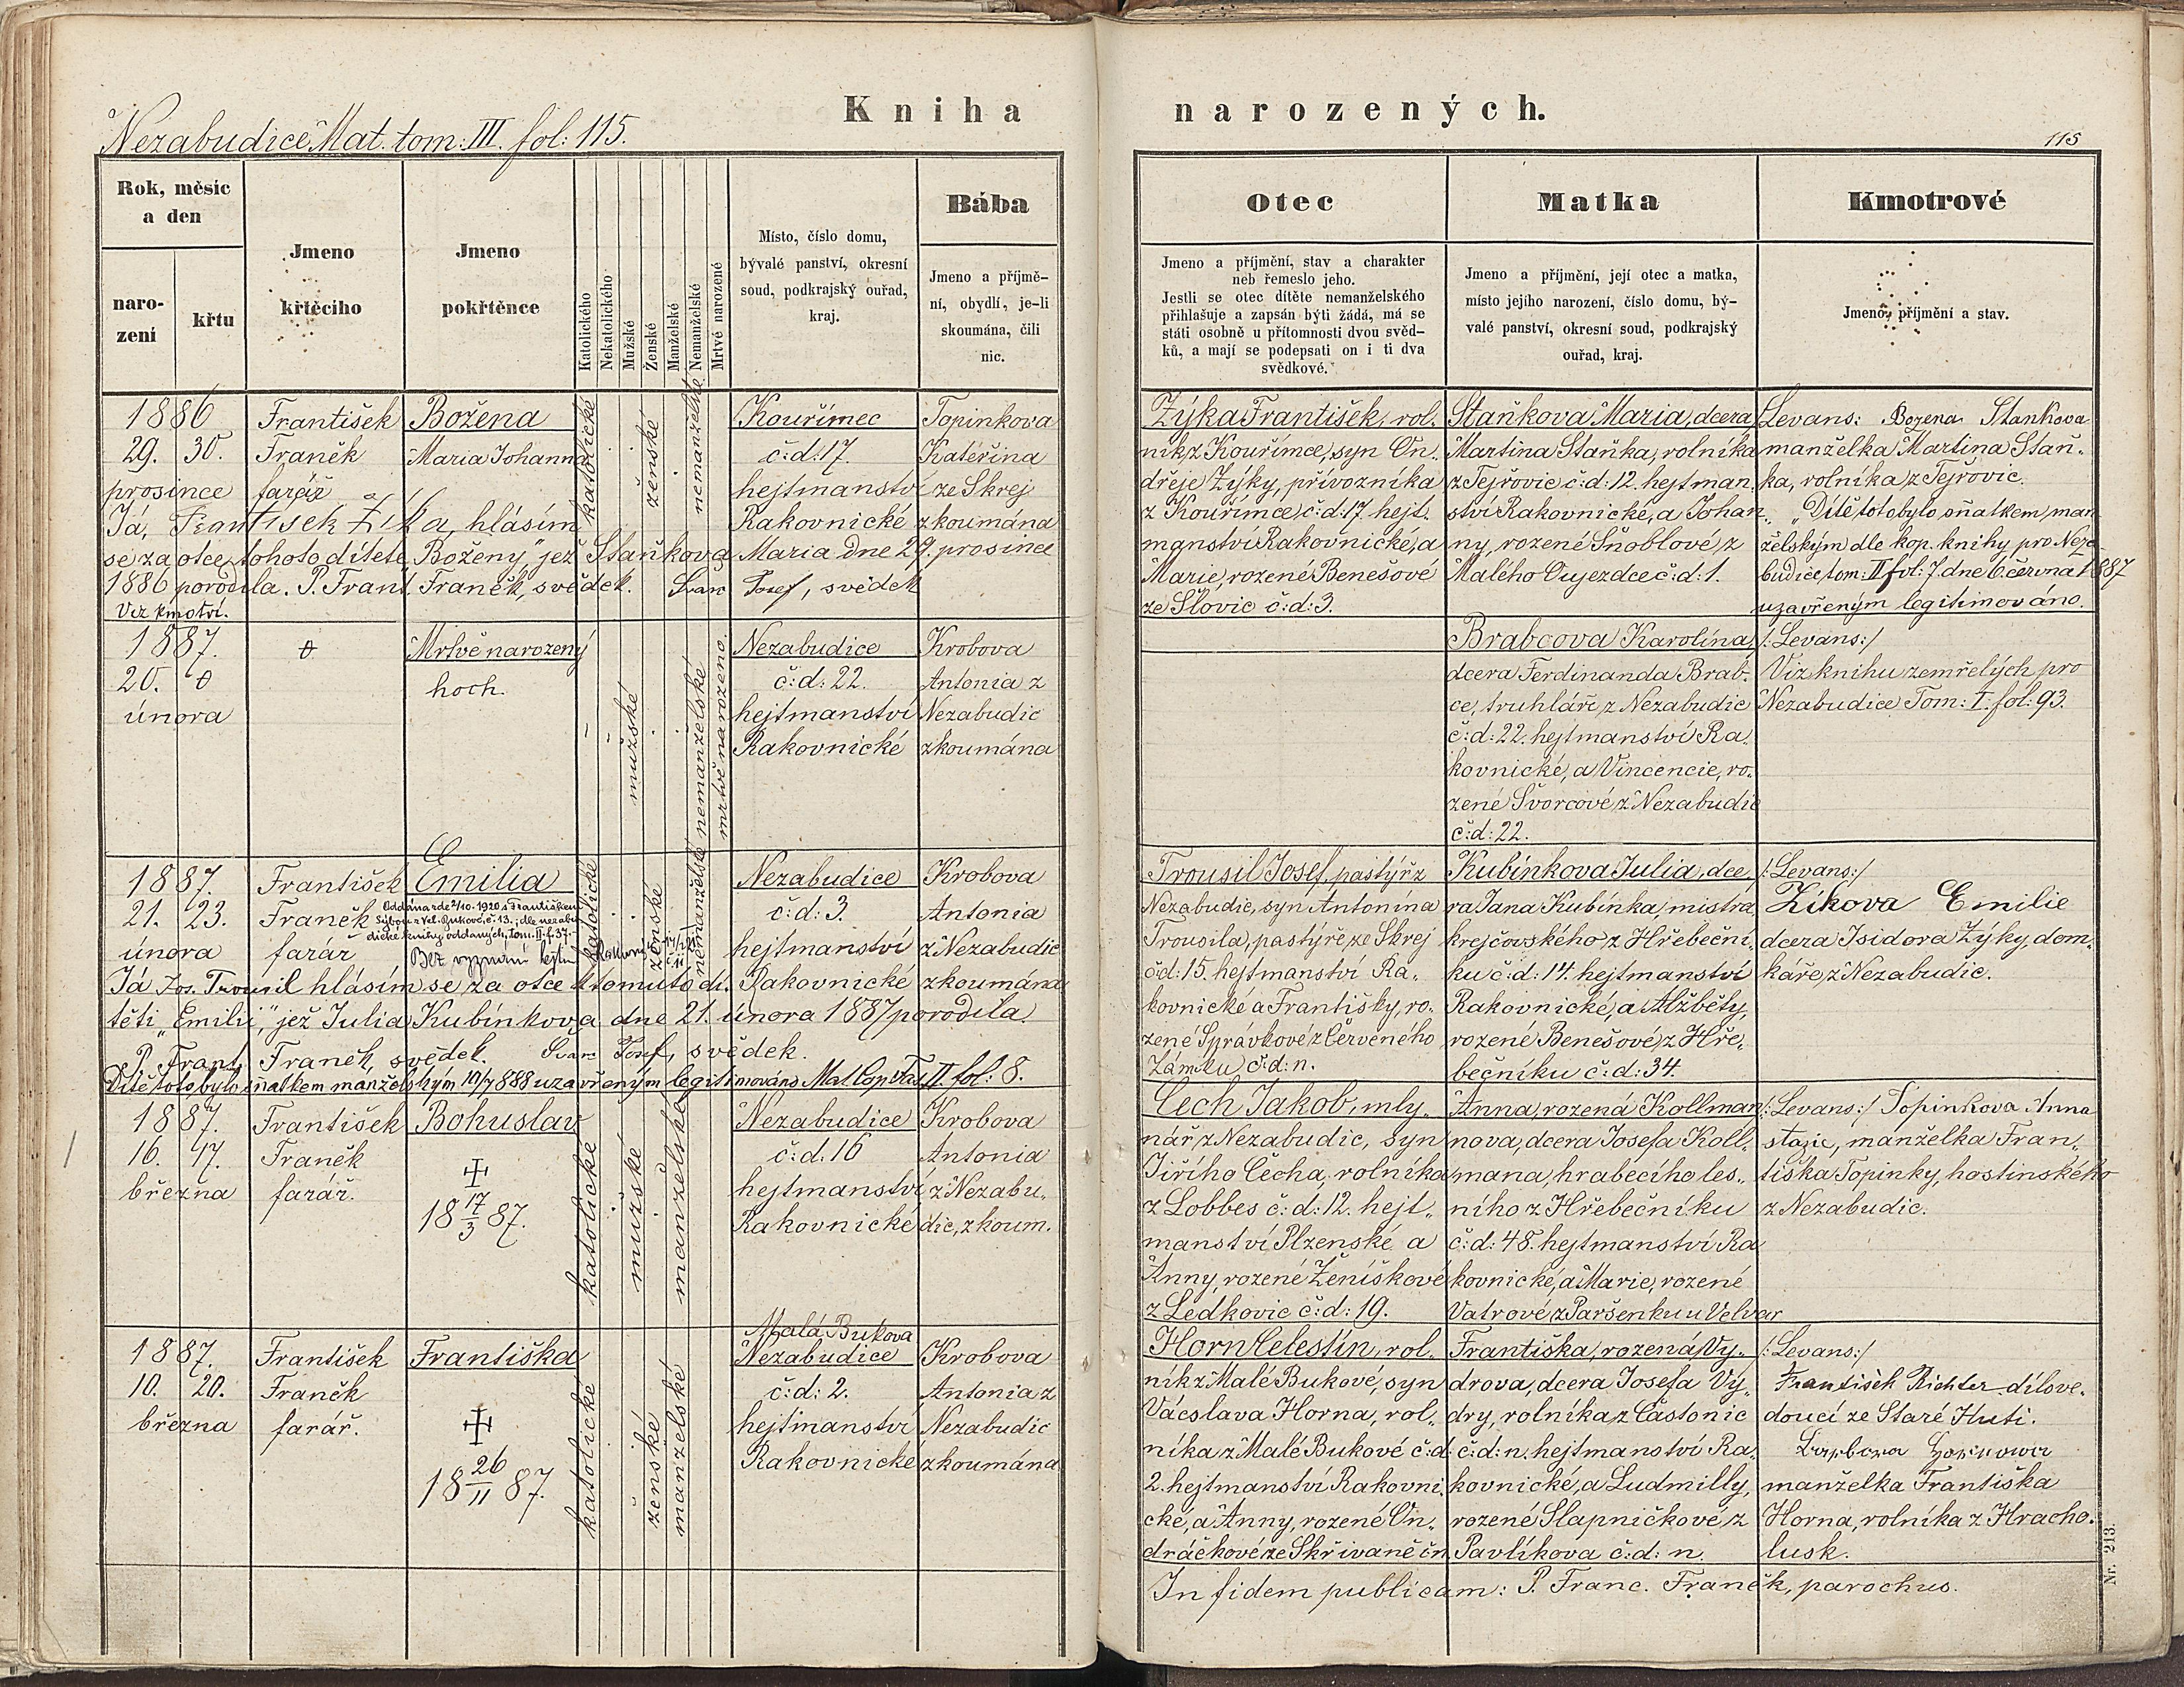 Kniha narozených.
Nezabudice Mat. tom: III. fol: 115.
115
Rok, měsíc
a den
naro-
zení
křtu
Jmeno
křtěcího
Jmeno
pokřtěnce
Katolického
Nekatolického
Mužské
Ženské
Manželské
Nemanželské
Mrtvé narozené
Místo, číslo domu,
bývalé panství, okresní
soud, podkrajský ouřad,
kraj.
Bába
Jmeno a příjmě-
ní, obydlí, je-li
skoumána, čili
nic.
Otec
Jmeno a příjmění, stav a charakter
neb řemeslo jeho.
Jestli se otec dítěte nemanželského
přihlašuje a zapsán býti žádá, má se
státi osobně u přítomnosti dvou svěd-
ků, a mají se podepsati on i ti dva
svědkové.
Matka
Jmeno a příjmění, její otec a matka,
místo jejího narození, číslo domu, bý-
valé panství, okresní soud, podkrajský
ouřad, kraj.
Kmotrové
Jmeno, příjmění a stav.
1886
29. 30.
prosince
František
Franěk
farář
Božena
Maria Johanna
katolické
ženské
nemanželské
Kouřimec
č:d:17.
hejtmanství
Rakovnické
Topinkova
Kateřina
ze Skrej
zkoumána
Já, František Zíka, hlásím
se za otce tohoto dítěte „Boženy,“ jež Staňkova Maria dne 29. prosince
1886 porodila. P. Frant. Franěk, svědek. Švarc Josef, svědek
Viz kmotři.
Zýka František, rol-
ník z Kouřimce, syn On-
dřeje Zýky, přívozníka
z Kouřimce, č:d:17. hejt-
manství Rakovnické, a
Marie, rozené Benešové
ze Slovic č:d:3.
Staňkova Maria, dcera
Martina Staňka, rolníka
z Tejřovic č:d:12. hejtman-
ství Rakovnické, a Johan-
ny, rozené Šnoblové, z
Malého Oujezdce č:d:1.
Levans: Bozena Stankova
manželka Martina Staň-
ka, rolníka z Tejřovic.
„Dítě toto bylo sňatkem man-
želským dle kop. knihy pro Neza-
budice tom: II fol: 7. dne 6. června 1887
uzavřeným legitimováno.
1887.
20. 0
února
0
Mrtvě narozený
hoch.
mužské
nemanželské
mrtvě narozeno.
Nezabudice
č:d:22.
hejtmanství
Rakovnické
Krobova
Antonia z
Nezabudic
zkoumána
Brabcova Karolína,
dcera Ferdinanda Brab-
ce, truhláře, z Nezabudic
č:d:22. hejtmanství Ra-
kovnické, a Vincencie, ro-
zené Švorcové, z Nezabudic
č:d:22.
/:Levans:/
Viz knihu zemřelých pro
Nezabudice Tom: I. fol: 93.
1887.
21. 23.
února
František
Franěk
farář
Emilia
Oddána zde 2/10. 1920 s Františkem
z Vel. Bukové, č. 13.; dle nezabu-
dické knihy oddaných, tom. II. f. 37.
Bez vyznání
katolické
ženské
nemanželské
Nezabudice
č:d:3.
hejtmanství
Rakovnické
Krobova
Antonia
z Nezabudic
zkoumána
Já Jos. Trousil hlásím se za otce k tomuto dí-
těti „Emilii,“ jež Julia Kubínkova dne 21. února 1887 porodila.
P. Frant. Franěk, svědek. Švarc Josef, svědek.
Dítě toto bylo sňatkem manželským 10/7 888 uzavřeným legitimováno Mat. Cop. Fas. II. fol: 8.
Trousil Josef, pastýř z
Nezabudic, syn Antonína
Trousila, pastýře ze Skrej
čd:15. hejtmanství Ra-
kovnické a Františky, ro-
zené Správkové z Červeného
Zámku č:d:n.
Kubínkova Julia, dce-
ra Jana Kubínka, mistra
krejčovského z Hřebeční-
ku č:d:14. hejtmanství
Rakovnické, a Alžběty,
rozené Benešové, z Hře-
bečníku č:d:34.
/:Levans:/
Zíkova Emilie
dcera Isidora Zýky, dom-
káře, z Nezabudic.
1887.
16. 17.
března
František
Franěk
farář.
Bohuslav
18 17/3 87.
katolické
mužské
manželské
Nezabudice
č:d:16
hejtmanství
Rakovnické
Krobova
Antonia
z Nezabu-
dic, zkoum.
Čech Jakob, mly-
nář z Nezabudic, syn
Jiřího Čecha, rolníka
z Lobbes č:d:12. hejt-
manství Plzenské a
Anny, rozené Ženíškové
z Ledkovic č:d:19.
Anna, rozená Kollman-
nova, dcera Josefa Koll-
mana, hrabecího les-
ního z Hřebečníku
č:d:48. hejtmanství Ra-
kovnické, a Marie, rozené
Vatrové z Paršenku u Velvar
/:Levans:/ Topinkova Anna
stazie, manželka Fran-
tiška Topinky, hostinského
z Nezabudic.
1887.
10. 20.
března
František
Franěk
farář.
Františka
18 26/11 87.
katolické
ženské
manželské
Malá Bukova
Nezabudice
č:d:2.
hejtmanství
Rakovnické
Krobova
Antonia z
Nezabudic
zkoumána
Horn Celestin, rol-
ník z Malé Bukové, syn
Vácslava Horna, rol-
níka z Malé Bukové č:d:
2. hejtmanství Rakovni-
cké, a Anny, rozené On-
dráčkové ze Skřivaně čn
Františka, rozená Vy-
drova, dcera Josefa Vy-
dry, rolníka z Častonic
č:d:n. hejtmanství Ra-
kovnické, a Ludmilly,
rozené Slapničkové z
Pavlíkova č:d:n.
/:Levans:/
František Richter dílove-
doucí ze Staré Huti.
Barbora Hornowa
manželka Františka
Horna, rolníka z Hracho-
lusk.
In fidem publicam: P. Franc. Franěk, parochus.
Nr. 213.